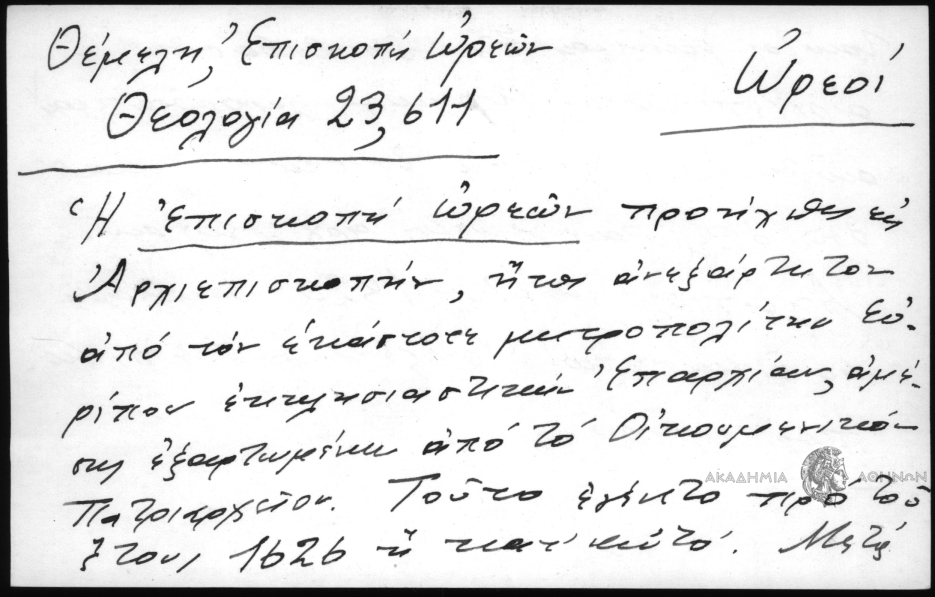 Θέμελη, Ἐπισκοπή Ὠρεῶν
Θεολογία 23, 611
Ὠρεοί
Ἡ Ἐπισκοπή Ὠρεῶν προήχθη εἰς
Ἀρχιεπισκοπήν, ἤτοι ἀνεξάρτητον
ἀπό τόν ἑκάστοτε μητροπολίτην Εὐ-
ρίπου ἐκκλησιαστικήν Ἐπαρχίαν, ἀμέ-
σως ἐξαρτωμένην ἀπό τό Οἰκουμενικόν
Πατριαρχεῖον. Τοῦτο ἐγένετο πρό τοῦ
ἔτους 1626 ἤ κατ' αὐτό. Μετά
ΑΚΑΔΗΜΙΑ ΑΘΗΝΩΝ